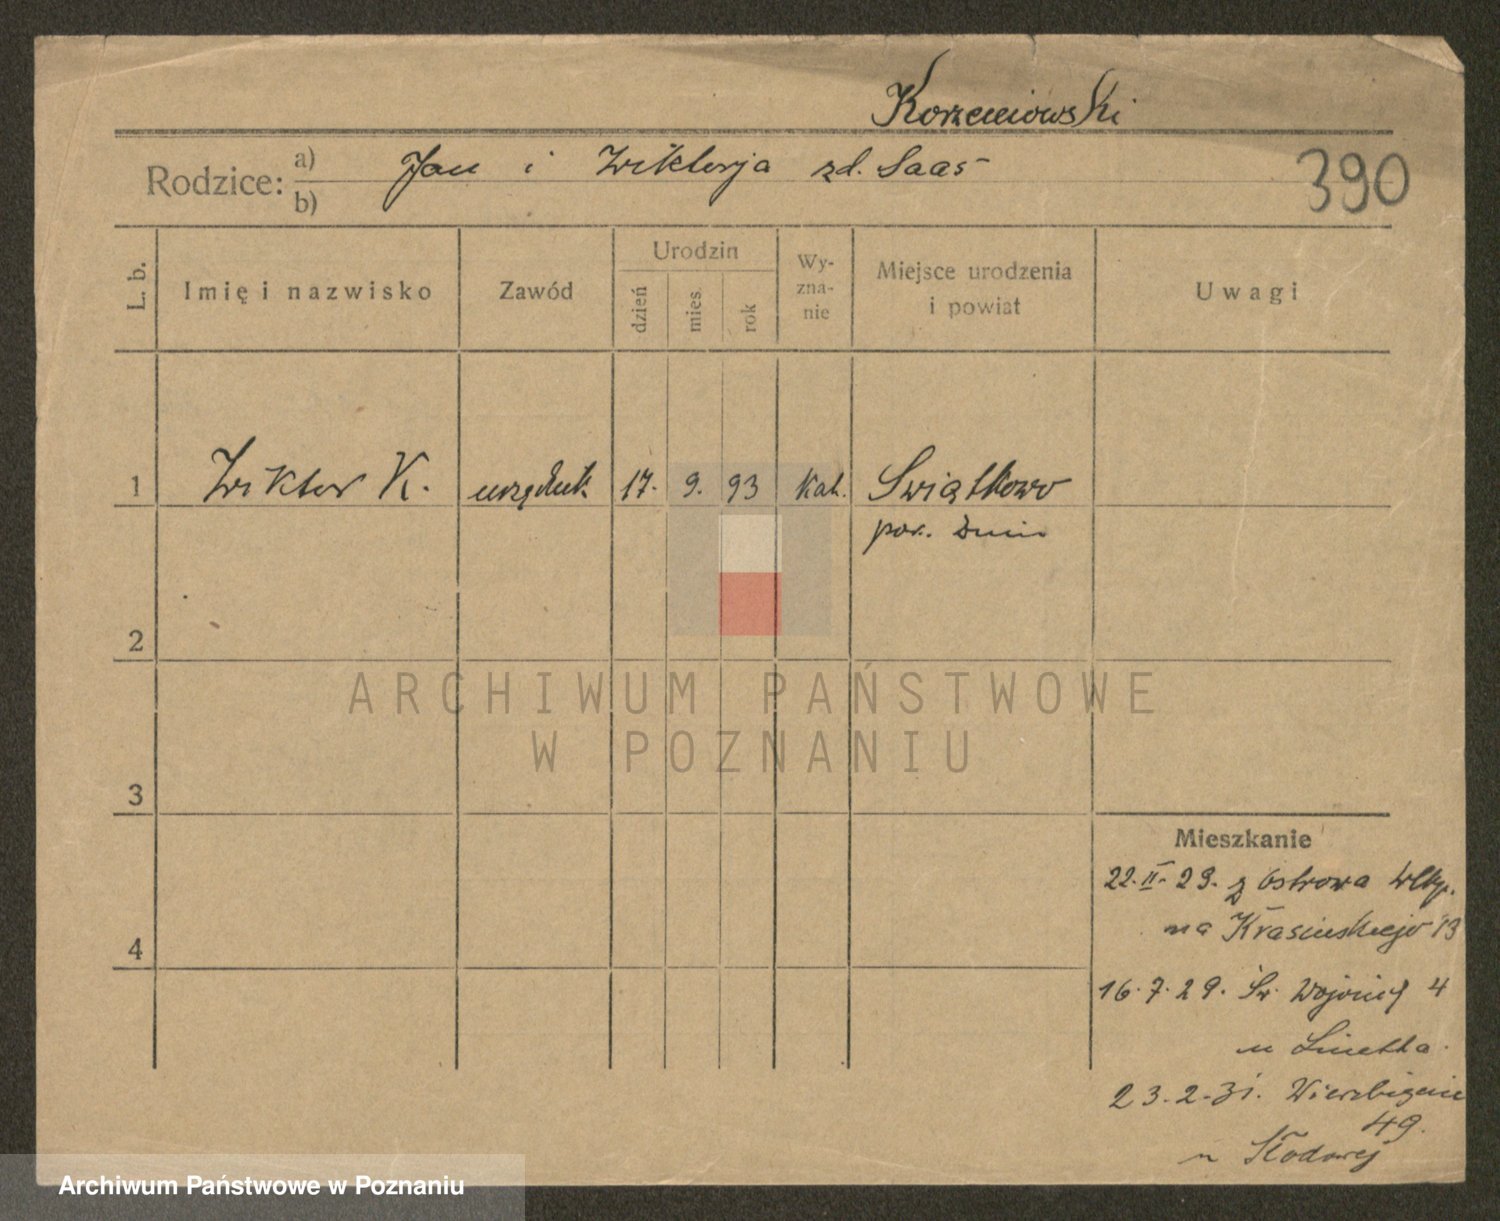 Korzeniowski
Rodzice: a) Jan i Wiktorja zd. Saas
b)
390
L. b.
Imię i nazwisko
Zawód
Urodzin
dzień
mies.
rok
Wy-
zna-
nie
Miejsce urodzenia
i powiat
Uwagi
1 Wiktor K. urzędnik 17. 9. 93 kat. Swiątkowo
pow. Żnin
2
3
4
Mieszkanie
22. II. 29. z Ostrowa Wlkp.
na Krasińskiego 13
16.7.29. Św. Wojciech 4
u Linetta.
23.2.31. Wierzbięcie
49.
u Kłodowej
ARCHIWUM PAŃSTWOWE
W POZNANIU
Archiwum Państwowe w Poznaniu